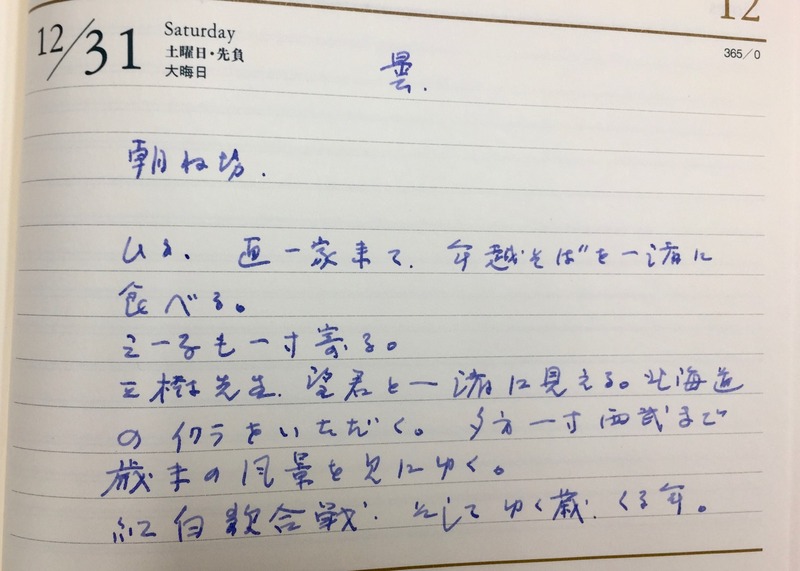 12
12/31
Saturday
土曜日・先負
大晦日
365/0
曇.
朝ね坊.
ひる、直一家来て、年越そばを一緒に
食べる。
子も一寸寄る。
先生、望君と一緒に見える。北海道
のイクラをいただく。夕方一寸西武まで
歳末の風景を見にゆく。
紅白歌合戦、そしてゆく歳、くる年。